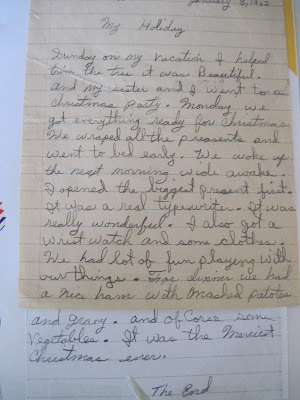 January 3, 1962
My Holiday
Sunday on my vacation I helped
trim the tree it was Beautiful.
and my sister and I went to a
christmas party. Monday we
got everything ready for Christmas
We wraped all the presents and
went to bed early. We woke up
the next morning wide awake.
I opened the biggest present first.
It was a real typewriter. It was
really wonderful. I also got a
wrist watch and some clothes.
We had lot of fun playing with
our things. For dinner we had
a nice ham with Mashed patotes
and gravy. and of Corse some
Vegetables. It was the Merriest
Christmas ever.
The End